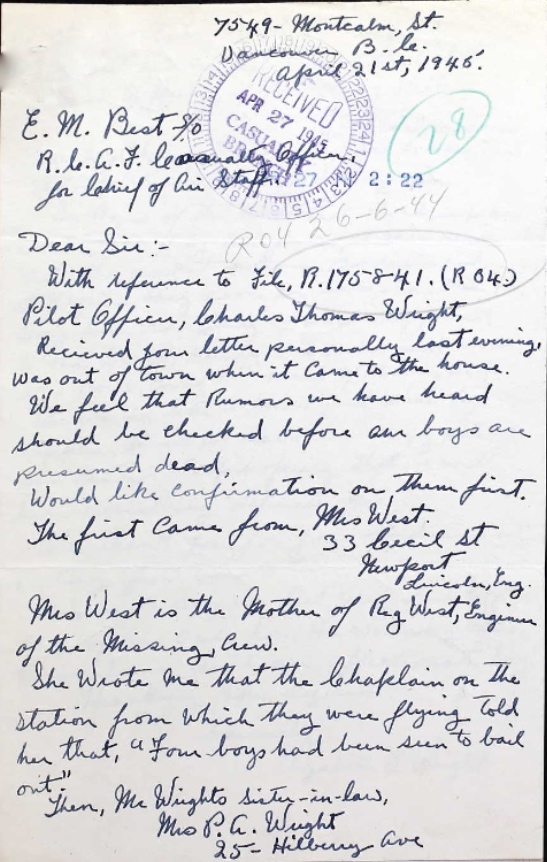 7549- Montcalm, St.
Vancouver B.C.
April 21st, 1945.
RECEIVED
APR 27 1945
CASUALTY
BRANCH
27 2:22
28
E. M. Best S/O
R.C.A.F. Casualty Officer,
for Chief of Air Staff.
R04 26-6-44
Dear Sir:-
With reference to File, R.175841. (R04.)
Pilot Officer, Charles Thomas Wright,
Recieved your letter personally last evening,
was out of town when it came to the house.
We feel that Rumors we have heard
should be checked before our boys are
presumed dead,
Would like confirmation on them first.
The first came from, Mrs West.
33 Cecil St
Newport
Lincoln, Eng.
Mrs West is the Mother of Reg West, Engineer
of the Missing, Crew.
She Wrote me that the Chaplain on the
station from which they were flying told
her that, "Four boys had been seen to bail
out."
Then, Mr Wrights sister-in-law,
Mrs P. A. Wright
25- Hilberry Ave